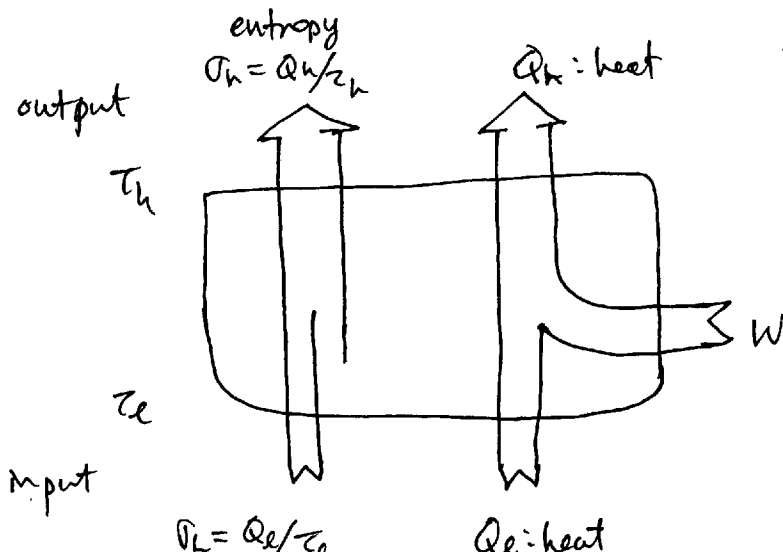 entropy
σh = Qh/τh
Qh : heat
output
τh
W
τl
input
σh = Ql/τl
Ql : heat